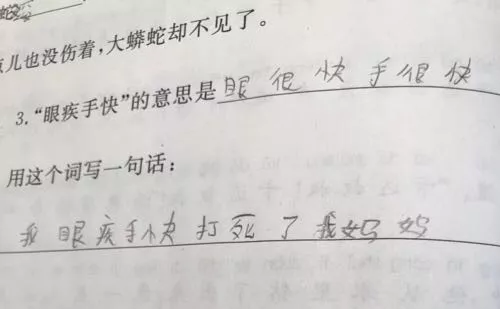 点儿也没伤着，大蟒蛇却不见了。
3.“眼疾手快”的意思是眼很快手很快
用这个词写一句话：
我眼疾手快打死了我妈妈